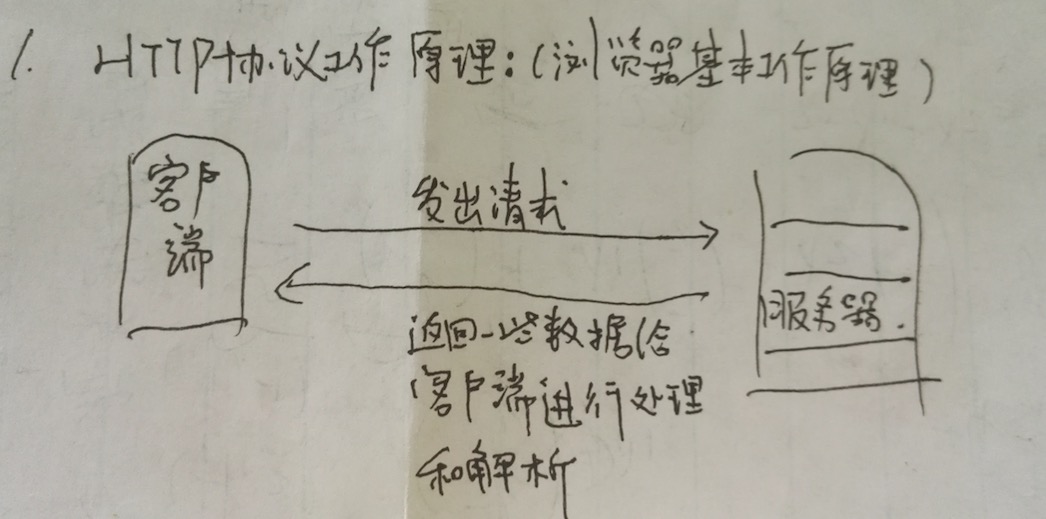 1. HTTP协议工作原理:(浏览器基本工作原理)
客户
端
发出请求
服务器.
返回一些数据给
客户端进行处理
和解析